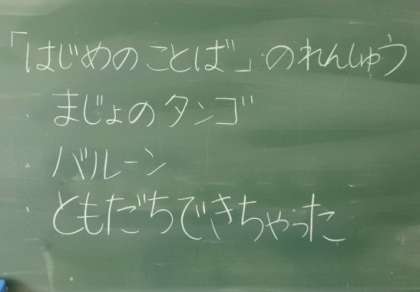 「はじめのことば」のれんしゅう
・まじょのタンゴ
・バルーン
・ともだちできちゃった